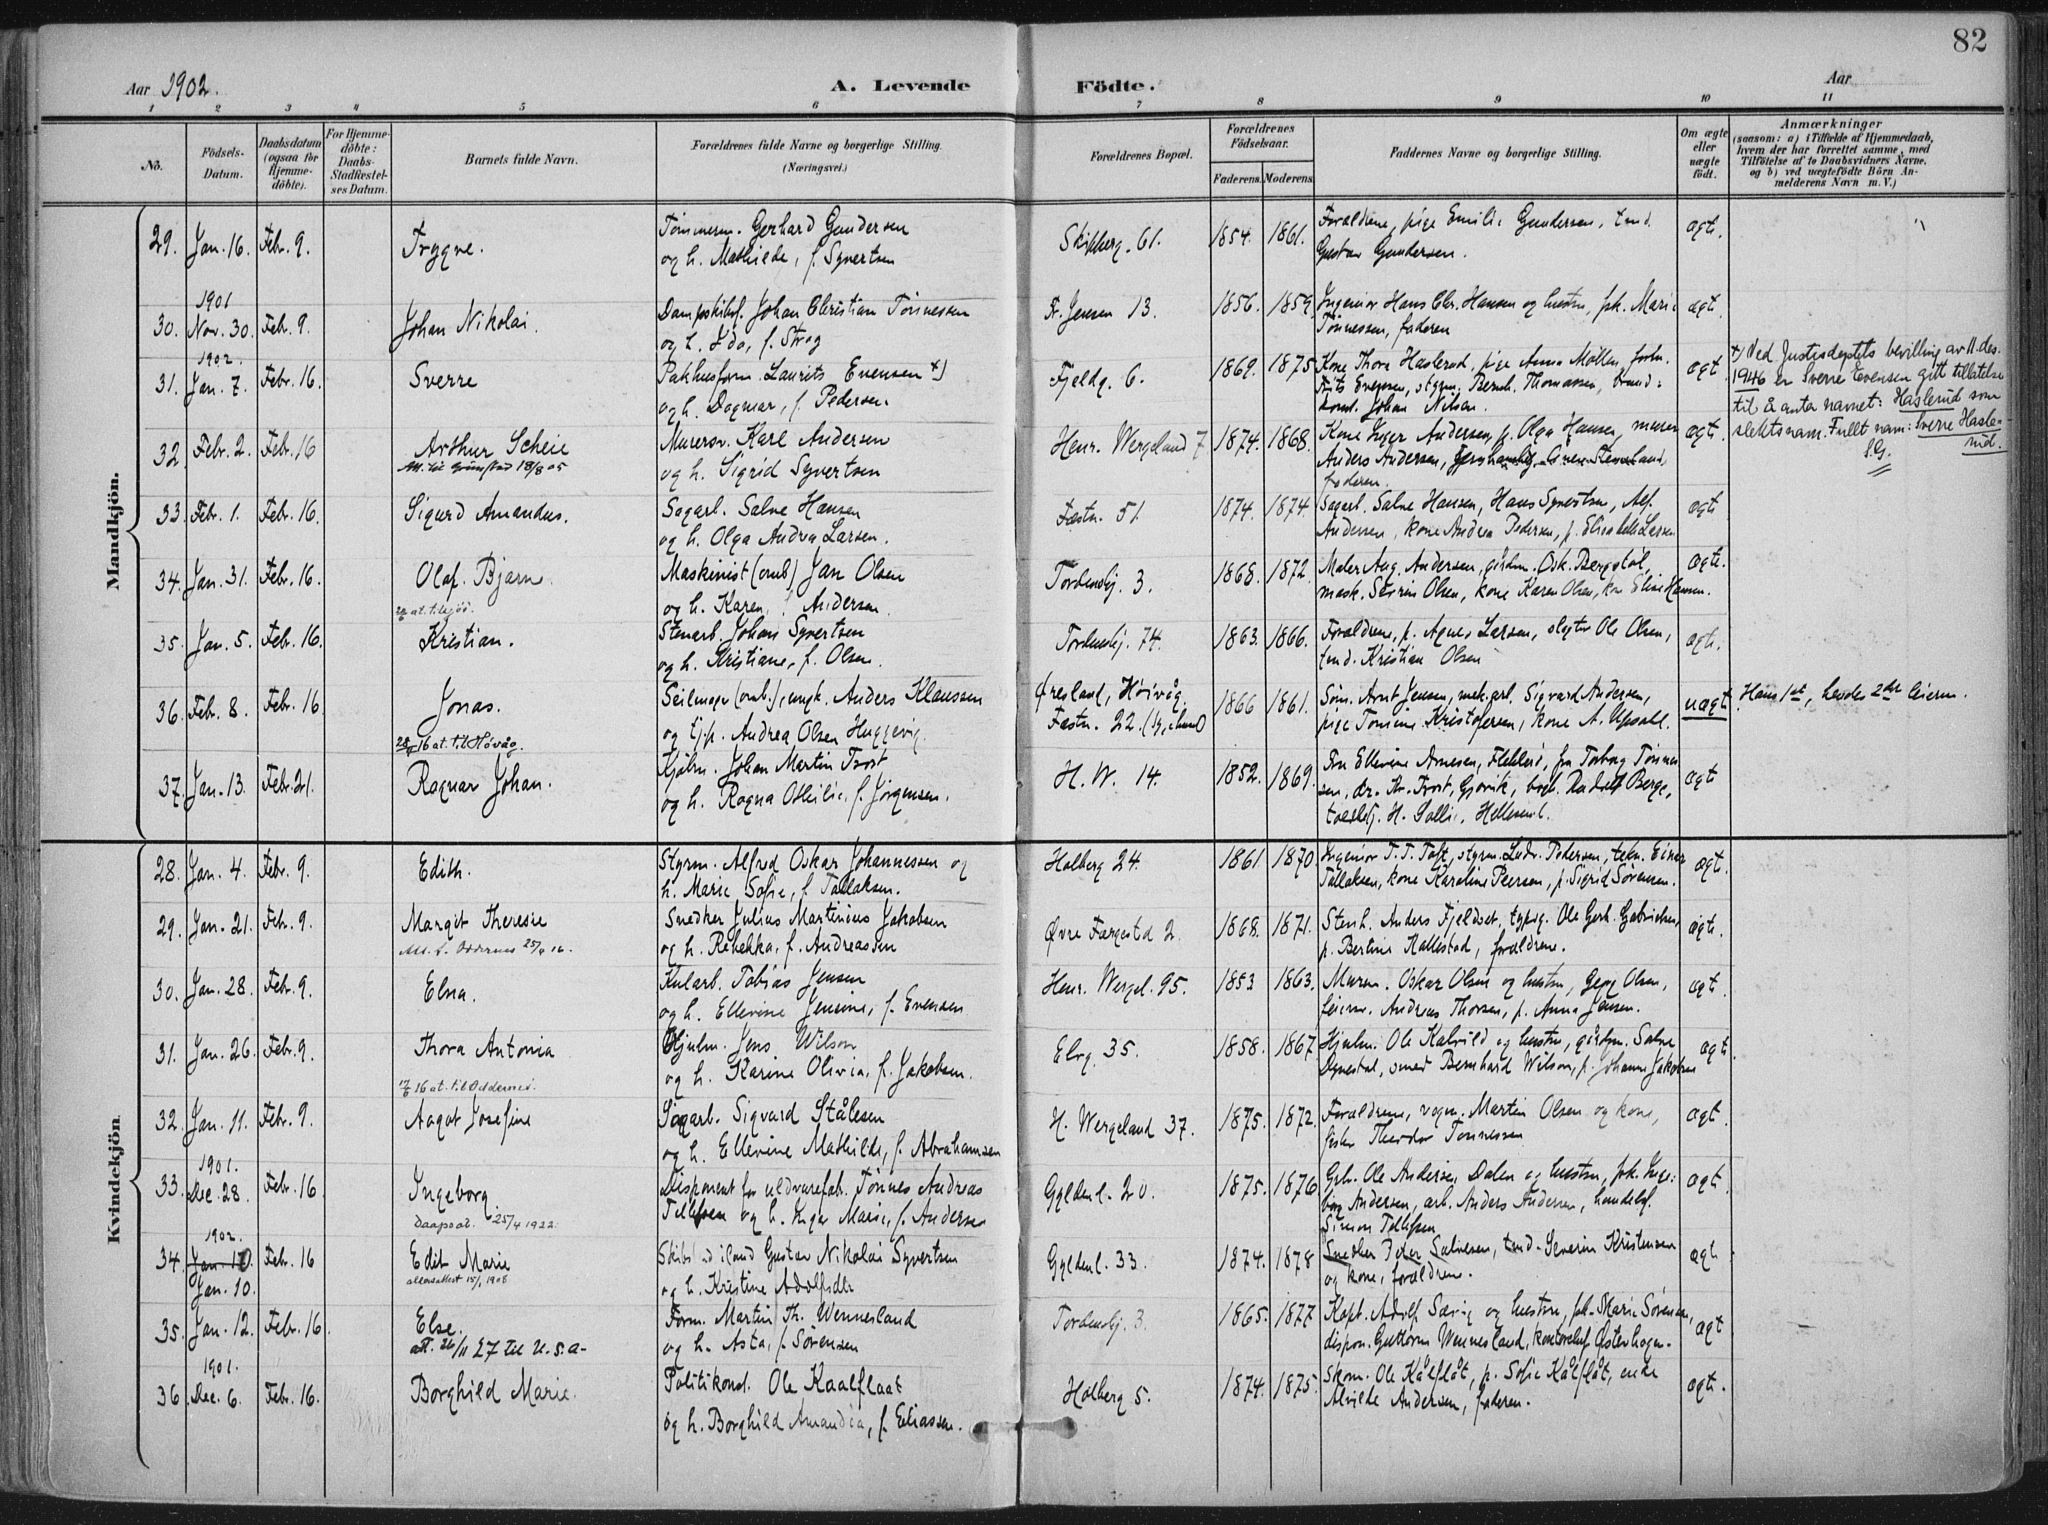 82
Aar 1902. A. Levende Fødte. Aar
1 2 3 4 5 6 7 8 9 10 11
No. Fødsels-Datum. Daabsdatum (ogsaa for Hjemmedøbte). For Hjemmedøbte: Daabs-Stadfæstelses Datum. Barnets fulde Navn. Forældrenes fulde Navne og borgerlige Stilling. (Næringsvei.) Forældrenes Bopæl. Forældrenes Fødselsaar. Faderens. Moderens. Faddernes Navne og borgerlige Stilling. Om ægte eller uægte født. Anmærkninger (saasom: a) i Tilfælde af Hjemmedaab, hvem der har forrettet samme, med Tilføielse af to Daabsvidners Navne. og b) ved uægtefødte Børn Anmelderens Navn m. V.)
Mandkjön.
29. Jan. 16. Febr. 9. Trygve. Tømmerm. Gerhard Gundersen Skipperg. 61. 1854. 1861. Forældrene, pige Emilie Gundersen, tmd. ægt.
og h. Mathilde, f. Syvertsen Gustav Gundersen.
1901
30. Nov. 30. Febr. 9. Johan Nikolai. Dampskibsf. Johan Christian Tønnessen Fr. Jensen 13. 1856. 1859. Ingeniør Hans Chr. Hansen og hustru, frk. Marie ægt.
og h. Ida, f. Strøg Tønnessen, faderen
1902.
31. Jan. 7. Febr. 16. Sverre Pakhusform. Laurits Evensen +) Fjeldg. 6. 1869. 1875 Kone Thora Haslerud, pige Anna Møller, ægt. +) Ved Justisdeptets bevilling av 11. des.
og h. Dagmar, f. Pedersen. Evensen, styrm. Bernh. Thomassen, brand- 1946 er Sverre Evensen gitt tillatelse
konst. Johan Nilsen. til å anta navnet: Haslerud som
slektsnavn. Fullt navn: Sverre Haslerud.
S.G.
32 Febr. 2. Febr. 16 Arthur Scheie Murersv. Karl Andersen Henr. Wergeland 7 1874. 1868. Kone Inger Andersen, p. Olga Hansen, murer ægt.
Att. til Grimstad 18/8 05 og h. Sigrid Syvertsen Anders Andersen,
faderen.
33. Febr. 1. Febr. 16. Sigurd Amandus. Sagarb. Salve Hansen Fæstn. 51. 1874. 1874 Sagarb. Salve Hansen, Hans Syvertsen, Alf. ægt
og h. Olga Andrea Larsen. Andersen, kone Andrea Pedersen, p. Elisabeth Larsen
34. Jan. 31. Febr. 16. Olaf Bjarne Maskinist (omb) Jan Olsen Tordenskj. 3. 1868. 1872. Maler Aug. Andersen, gårdm. Osk. Bergstøl, ægte.
og h. Karen, f. Andersen. mask. Severin Olsen, kone Karen Olsen, kone Eline Hansen.
35. Jan. 5. Febr. 16. Kristian. Stenarb. Johan Syvertsen Tordenskj. 74. 1863. 1866. Forældrene, p. Agnes Larsen, slagter Ole Olsen, ægt.
og h. Kristiane, f. Olsen. tmd. Kristian Olsen
36. Febr. 8. Febr. 16 Jonas. Seilmager (omb.), ungk. Anders Klaussen Øresland, Høivåg, 1866 1861. Søm. Arnt Jensen, mek. arb. Sigvard Andersen, uægt. Hans 1ste, hendes 2den leierm.
28/9 16 at. til Høvåg. og tj.p. Andrea Olsen Fæstn. 22. pige Tomine Kristofersen, kone A. Upsall.
37. Jan. 13. Febr. 21. Ragnar Johan. Kjøbm. Johan Martin Trost H. W. 14. 1852. 1869. Fru Ellevine Arnesen, Flekkerø, fru Torborg Tønnes- ægt
og h. Ragna Othilie, f. Jørgensen. sen, dr. Th. Trost, Gjøvik, Rudolf Berge,
H. Salli, Hellesund.
Kvindekjön
28. Jan. 4. Febr. 9. Edith. Styrm. Alfred Oskar Johannessen og Holberg 24. 1861. 1870. Ingeniør T. T. Toft, styrm. Ludv. Pedersen, tekn. Einar ægt.
h. Marie Sofie, f. Tallaksen. Tallaksen, kone Karoline Peersen, p. Sigrid Sørensen.
29. Jan. 21. Febr. 9. Margit Theresie Snedker Julius Martinius Jakobsen Øvre Færgestd 2. 1868. 1871. Stenh. Anders Fjeldset, typog. Ole Gerh. Gabrielsen, ægte.
Att. t. Oddernes 25/9 16. og h. Rebekka, f. Andreassen p. Bertine Kallestad, forældrene.
30. Jan. 28. Febr. 9. Elna. Kularb. Tobias Jensen Henr. Wergel. 95. 1853 1863. Murm. Oskar Olsen og hustru, Georg Olsen, ægt.
og h. Ellevine Jensine, f. Evensen feierm. Andreas Thorsen, p. Anna Jensen.
31. Jan. 26. Febr. 9. Thora Antonia Hjulm. Jens Wilson Elvg. 35. 1858. 1867. Hjulm. Ole Kalvild og hustru, gårdm. Salve ægt
og h. Karine Olivia, f. Jakobsen. Dynestøl, smed Bernhard Wilson, p. Johanne Jakobsen
17/6 16 at. til Oddernes.
32. Jan. 11. Febr. 9. Aagot Josefine Sagarb. Sigvard Stålesen H. Wergeland 37. 1875. 1872. Forældrene, vogn. Martin Olsen og kone, ægt.
og h. Ellevine Mathilde, f. Abrahamsen fisker Theodor Tønnessen
1901.
33. Dec. 28. Febr. 16 Ingeborg. Disponent for uldvarefab. Tønnes Andreas Gyldenl. 20. 1875. 1876 Gbr. Ole Andersen Dalen og hustru, frk. Inge- ægt.
Daapsat. 25/4 1922. Tellefsen og h. Inger Marie, f. Andersen borg Andersen, arb. Anders Andersen, handelsf.
Simon Tellefsen
1902.
34. Jan. 10 Febr. 16 Edit Marie Gustav Nikolai Syvertsen Gyldenl. 33. 1874. 1878 Snedker Peder Salvesen, tmd. Severin Kristensen ægt.
Jan. 10. alleraattest 15/1 1908 og h. Kristine Adolfsdtr. og kone, forældrene.
35. Jan. 12. Febr. 16 Else. Form. Martin Th. Wennesland Tordenskj. 3. 1865. 1877 Kapt. Adolf Særvig og hustru, frk. Marie Sørensen, ægt
att. 26/11 27 til U.S.A. og h. Asta, f. Sørensen dispon. Guttorm Wennesland, kontorchef Østerhagen.
1901.
36 Dec. 6. Febr. 16. Borghild Marie. Politikonst. Ole Kaalflaat Holberg 5. 1874. 1875. Skom. Ole Kålflåt, p. Sofie Kålflåt, enke ægt.
og h. Borghild Amandia, f. Eliassen. Alvilde Andersen, faderen.